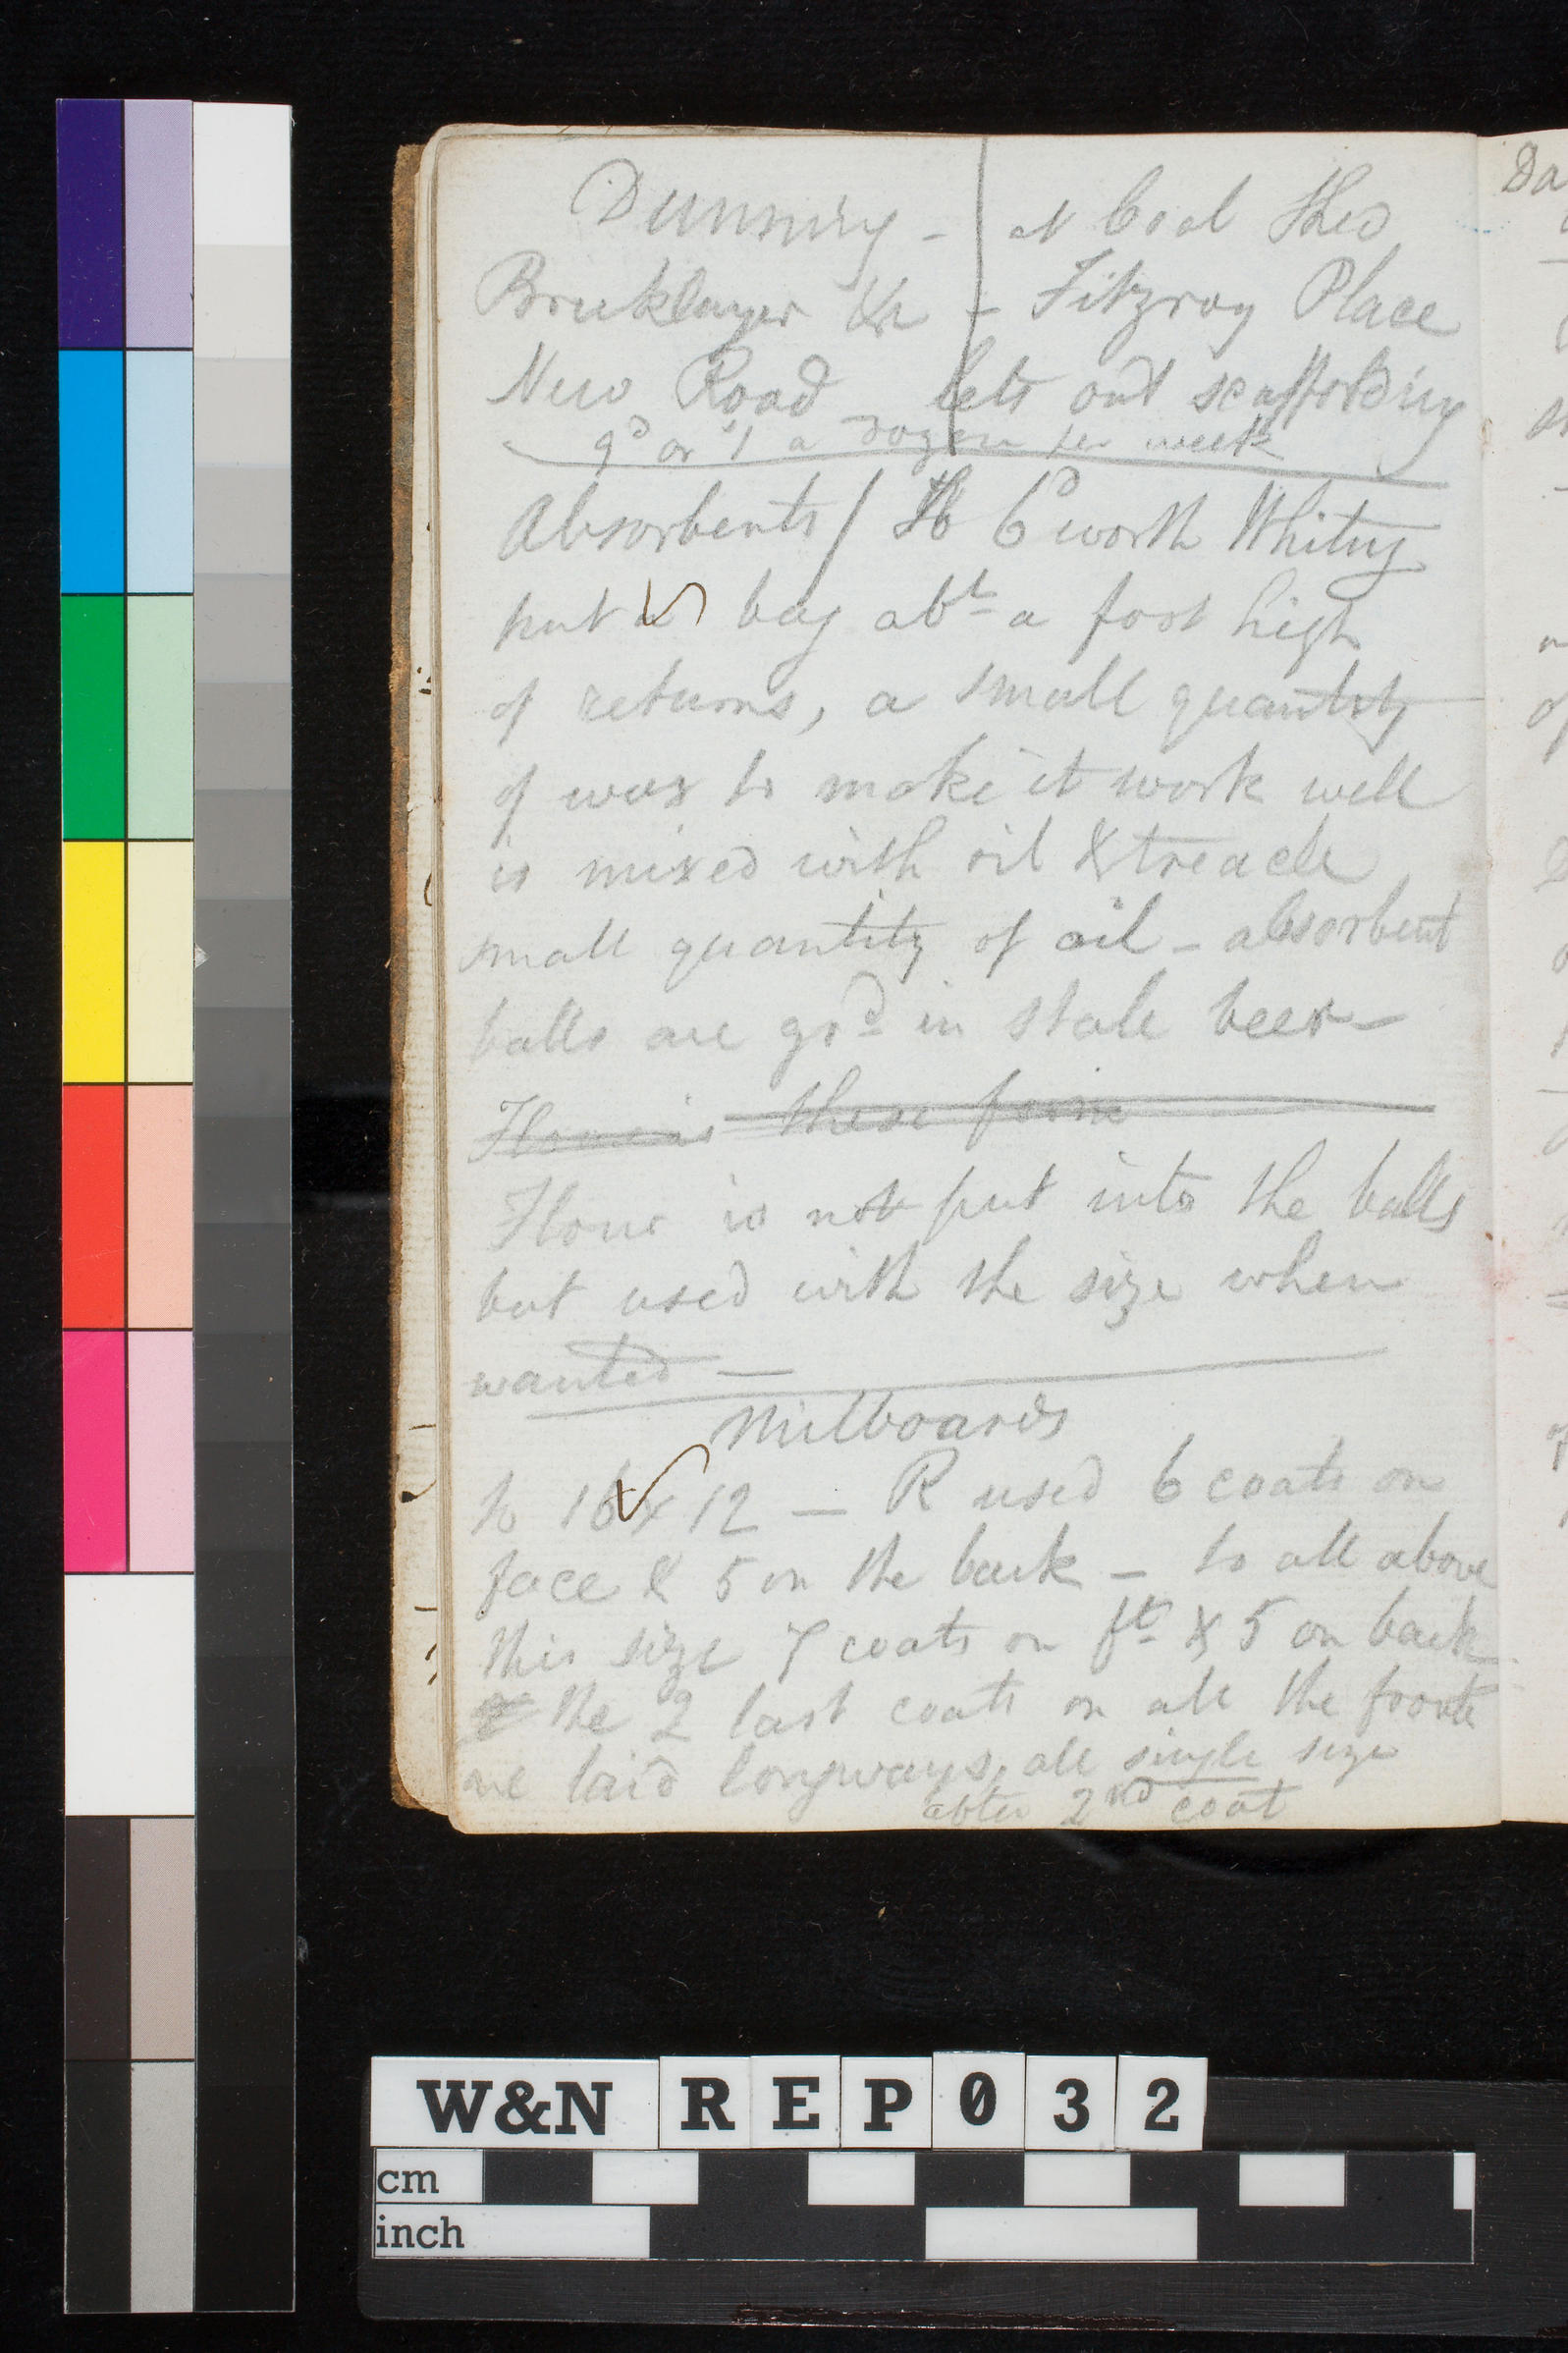 Dunning - at Coal Shed
Bricklayer &c - Fitzroy Place
New Road lets out scaffolding
9d or 1/ a dozen per week
Absorbents / To 6d worth Whiting
put a bag abt a foot high
of returns, a small quantity
of wax to make it work well
is mixed with oil & treacle
small quantity of oil - absorbent
balls are grd in stale beer -
Flour is these form
Flour is not put into the balls
but used with the size when
wanted —
Milboards
to 16 x 12 — R used 6 coats on
face & 5 on the back - to all above
this size 7 coats on ft & 5 on back
the 2 last coats on all the fronts
are laid longways, all single size
after 2nd coat
Da
W&N REP032
cm
inch